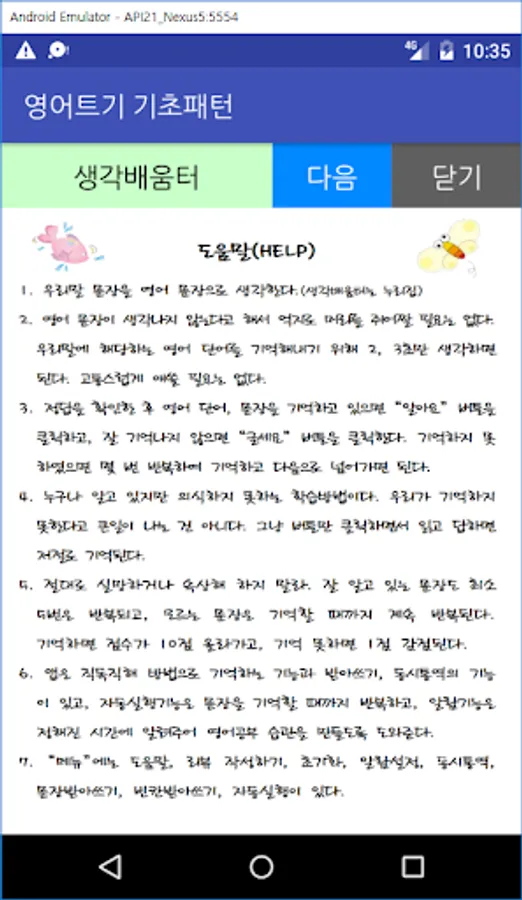 Android Emulator - API21_Nexus5:5554
4G 10:35
영어트기 기초패턴
생각배움터 다음 닫기
도움말(HELP)
1. 우리말 문장을 영어 문장으로 생각한다.(생각배움터는 누리집)
2. 영어 문장이 생각나지 않는다고 해서 억지로 머리를 쥐어짤 필요는 없다.
우리말에 해당하는 영어 단어를 기억해내기 위해 2, 3초만 생각하면
된다. 고통스럽게 애쓸 필요는 없다.
3. 정답을 확인한 후 영어 단어, 문장을 기억하고 있으면 "알아요" 버튼을
클릭하고, 잘 기억나지 않으면 "글쎄요" 버튼을 클릭한다. 기억하지 못
하였으면 몇 번 반복하여 기억하고 다음으로 넘어가면 된다.
4. 누구나 알고 있지만 의식하지 못하는 학습방법이다. 우리가 기억하지
못한다고 큰일이 나는 건 아니다. 그냥 버튼만 클릭하면서 읽고 답하면
저절로 기억된다.
5. 절대로 실망하거나 속상해 하지 말라. 잘 알고 있는 문장도 최소
5번은 반복되고, 모르는 문장은 기억할 때까지 계속 반복된다.
기억하면 점수가 10점 올라가고, 기억 못하면 1점 감점된다.
6. 앱은 직독직해 방법으로 기억하는 기능과 받아쓰기, 동시통역의 기능
이 있고, 자동실행기능은 문장을 기억할 때까지 반복하고, 알람기능은
정해진 시간에 알려주어 영어공부 습관을 만들도록 도와준다.
7. "메뉴"에는 도움말, 리뷰 작성하기, 초기화, 알람설정, 동시통역,
문장받아쓰기, 빈칸받아쓰기, 자동실행이 있다.